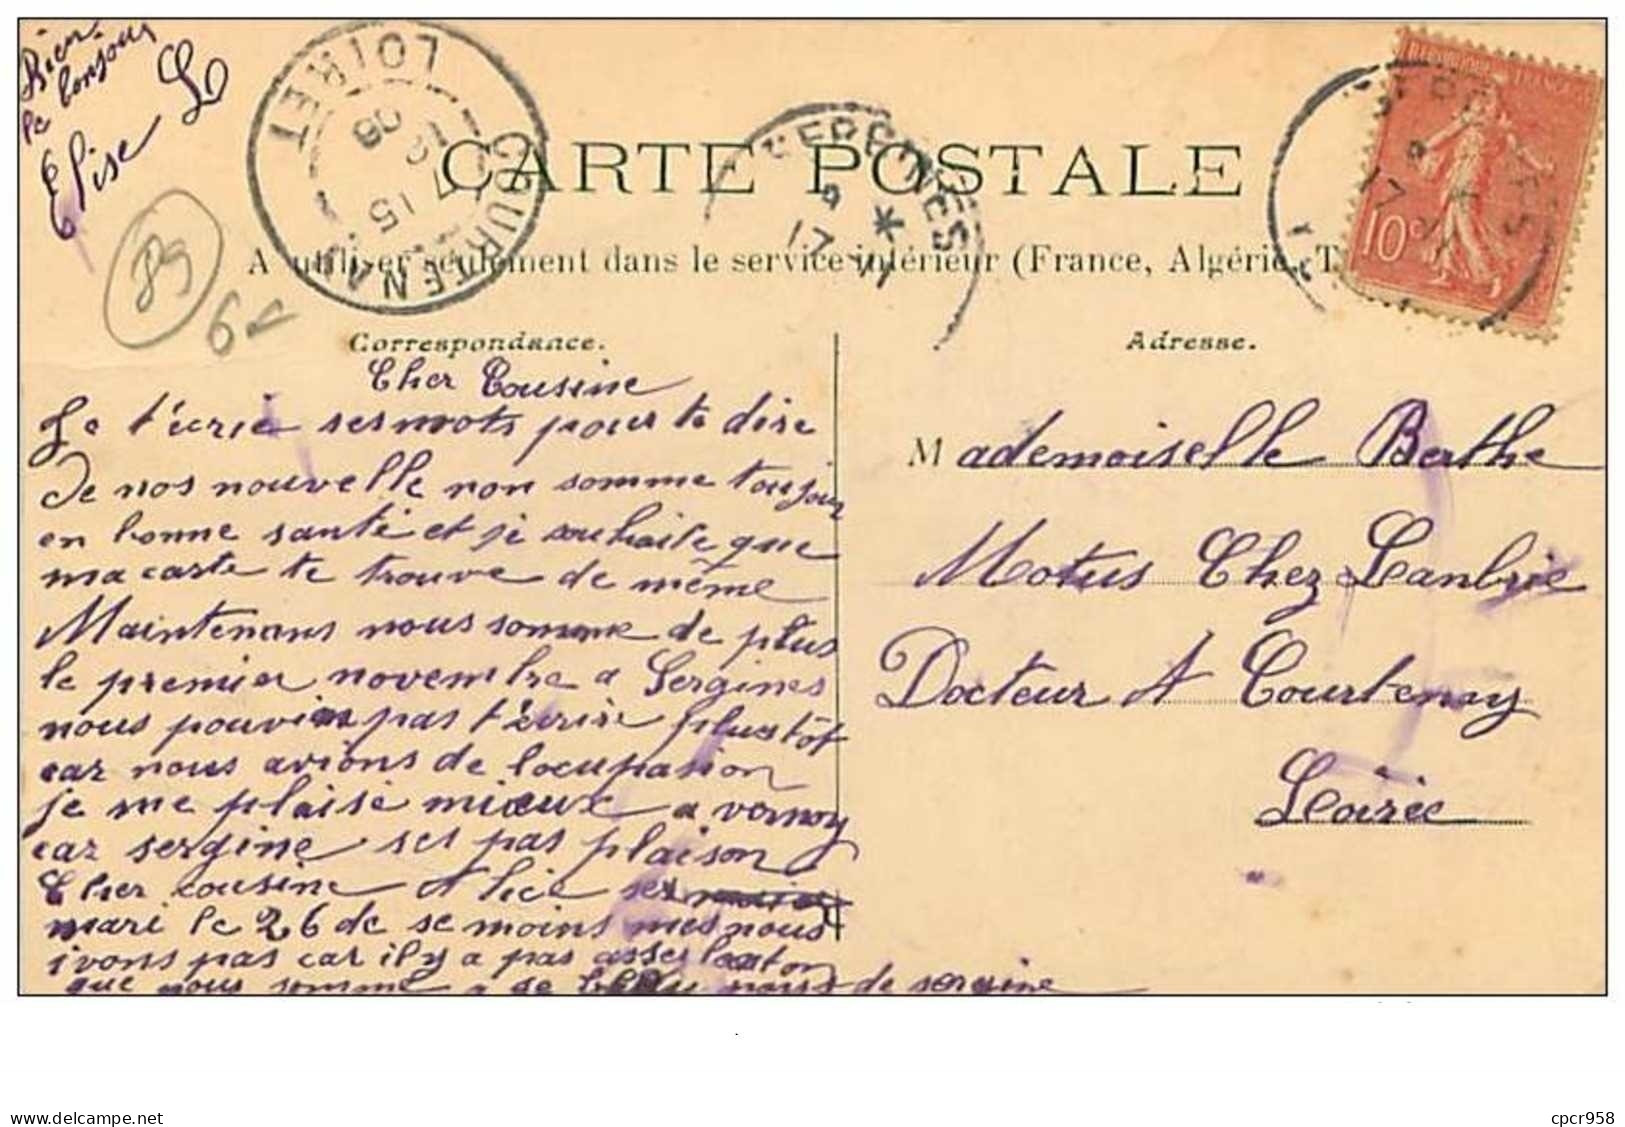 Bien
le bonjour
Elise L
COURTENAY
LOIRET
15
19
06
CARTE POSTALE
SERGINES
17
10c
A utiliser seulement dans le service intérieur (France, Algérie, T
89
Correspondance.
Adresse.
Cher Cousine
Je t'ecrie ses mots pour te dire
De nos nouvelle non somme toujour
en bonne santé et je souhaite que
ma carte te trouve de même
Maintenans nous somme de plus
le premier novembre a Sergines
nous pouvions pas t'ecrire plustôt
car nous avions de locupasion
je me plaise mieux a vernoy
car sergine ses pas plaison
Cher cousine Alice ses
mari le 26 de se moins mes nous
ivons pas car il y a pas asses
que nous somme a de sergine
Mademoiselle Berthe
Motus Chez Lanbrie
Docteur A Courtenay
Loirée
cpcr958
www.delcampe.net